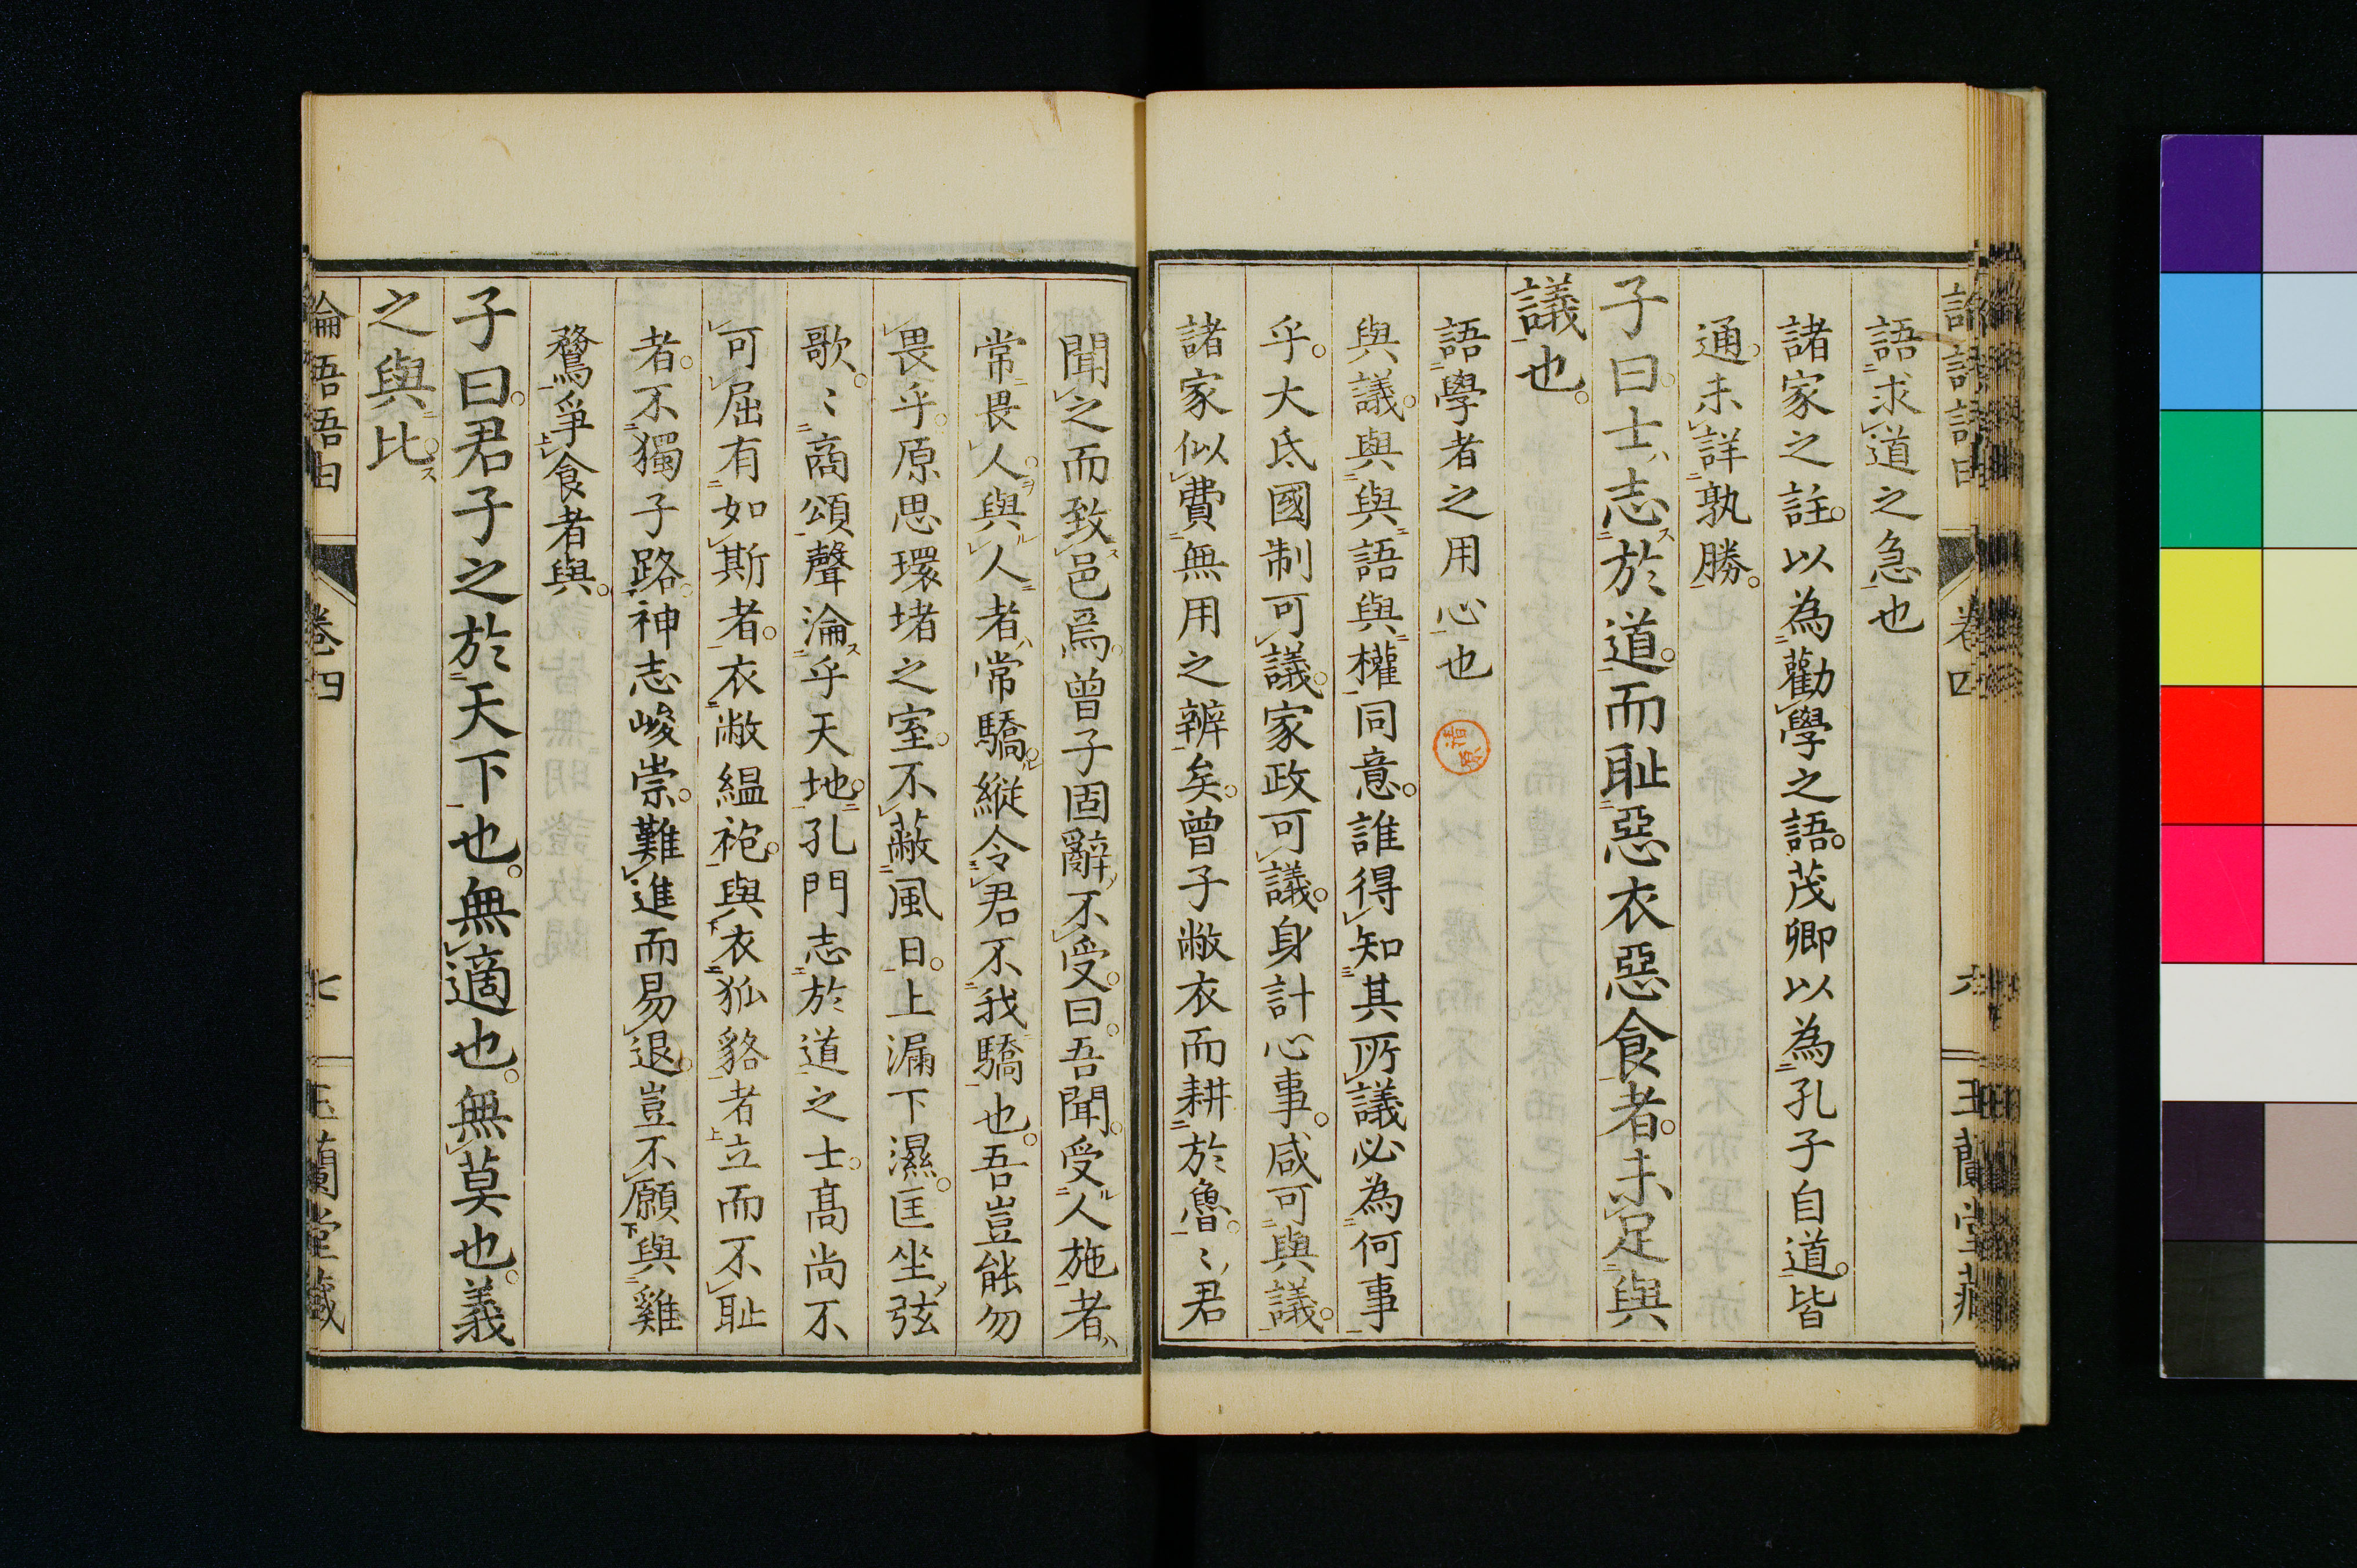 語求道之急也
諸家之註。以為勸學之語。茂卿以為孔子自道。皆
通。未詳孰勝。
子曰。士志於道。而耻惡衣惡食者。未足與
議也。
語學者之用心也
與議。與與語與權同意。誰得知其所議必為何事
乎。大氐國制可議。家政可議。身計心事。咸可與議。
諸家似費無用之辨矣。曾子敝衣而耕於魯。〻君
聞之而致邑焉。曾子固辭不受。曰。吾聞。受人施者、
常畏人。與人者、常驕。縱令君不我驕也。吾豈能勿
畏乎。原思環堵之室。不蔽風日。上漏下濕。匡坐弦
歌。〻商頌聲淪乎天地。孔門志於道之士。高尚不
可屈有如斯者。衣敝縕袍。與衣狐貉者立而不耻
者。不獨子路。神志峻崇。難進而易退。豈不願與雞
鶩爭食者與。
子曰。君子之於天下也。無適也。無莫也。義
之與比。
卷四
六
玉蘭堂藏
卷四
七
玉蘭堂藏